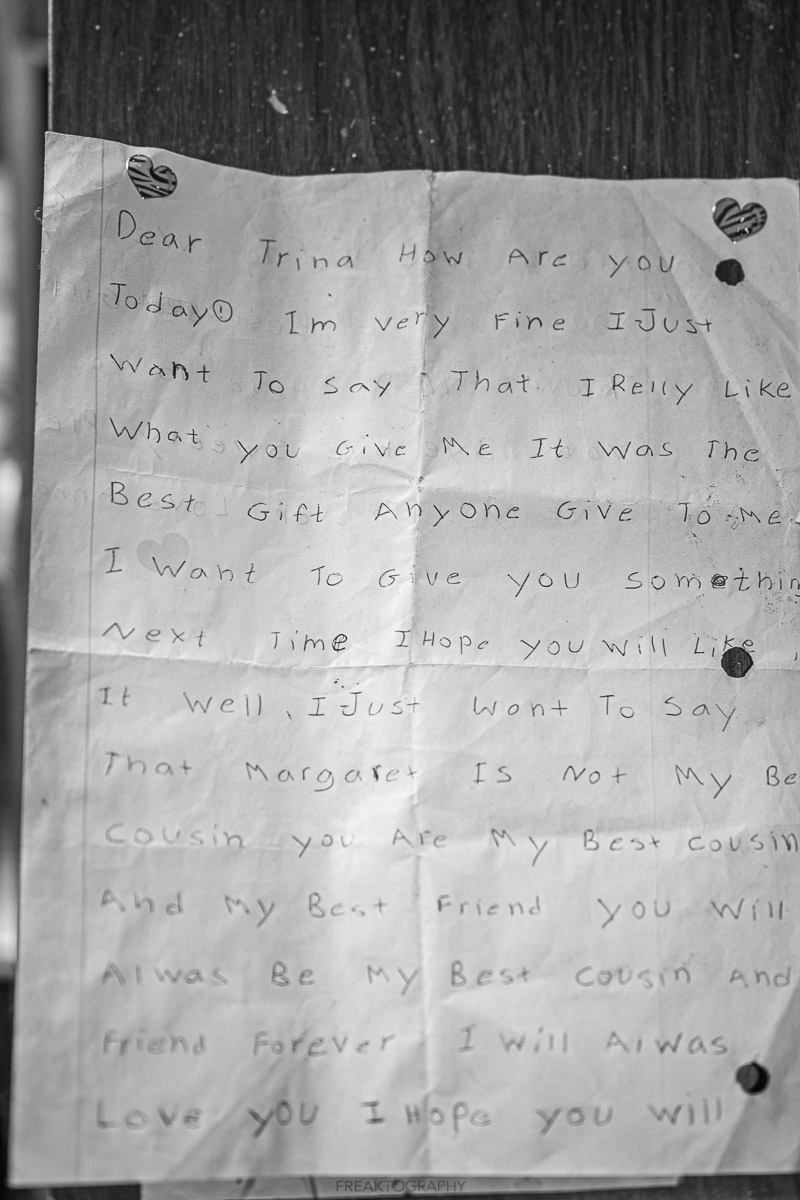 Dear Trina How Are you
Today! Im very Fine I Just
Want To say That I Relly Like
What you Give Me It Was The
Best Gift Anyone Give To Me
I Want To Give you somethin
Next Time I Hope you Will Like
It Well, I Just Wont To Say
That Margaret Is Not My Be
Cousin you Are My Best cousin
And My Best Friend you Will
Alwas Be My Best Cousin And
Friend Forever I Will Alwas
Love you I Hope you Will
FREAKTOGRAPHY